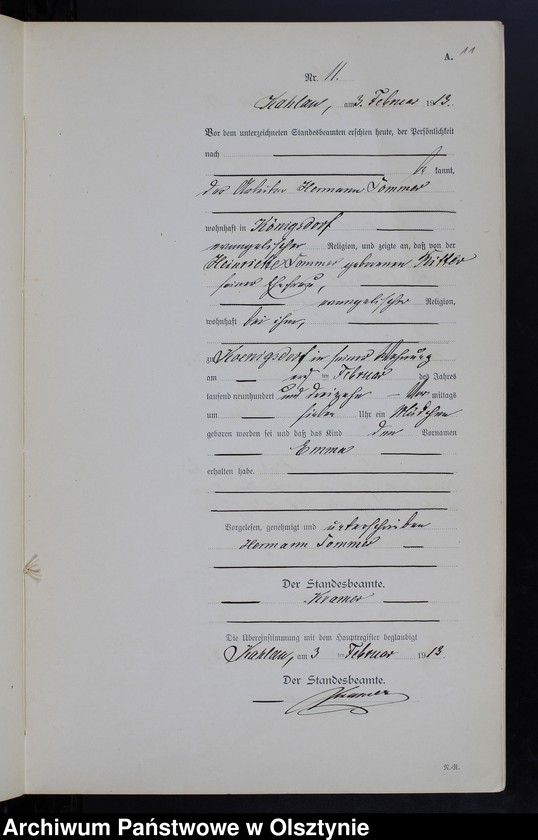 A. 11
Nr. 11.
Kahlau, am 3. Februar 1913.
Vor dem unterzeichneten Standesbeamten erschien heute, der Persönlichkeit
nach
kannt,
der Arbeiter Hermann Sommer
wohnhaft in Königsdorf
evangelischer Religion, und zeigte an, daß von der
Heinriette Sommer geborenen Ritter
seiner Ehefrau,
evangelischer Religion,
wohnhaft bei ihm,
zu Koenigsdorf in seiner Wohnung
am ten Februar des Jahres
tausend neunhundert und dreizehn Vor mittags
um sieben Uhr ein Mädchen
geboren worden sei und daß das Kind den Vornamen
Emma
erhalten habe.
Vorgelesen, genehmigt und unterschrieben
Hermann Sommer
Der Standesbeamte.
Kramer
Die Übereinstimmung mit dem Hauptregister beglaubigt
Kahlau, am 3 ten Februar 1913.
Der Standesbeamte.
Kramer
Archiwum Państwowe w Olsztynie